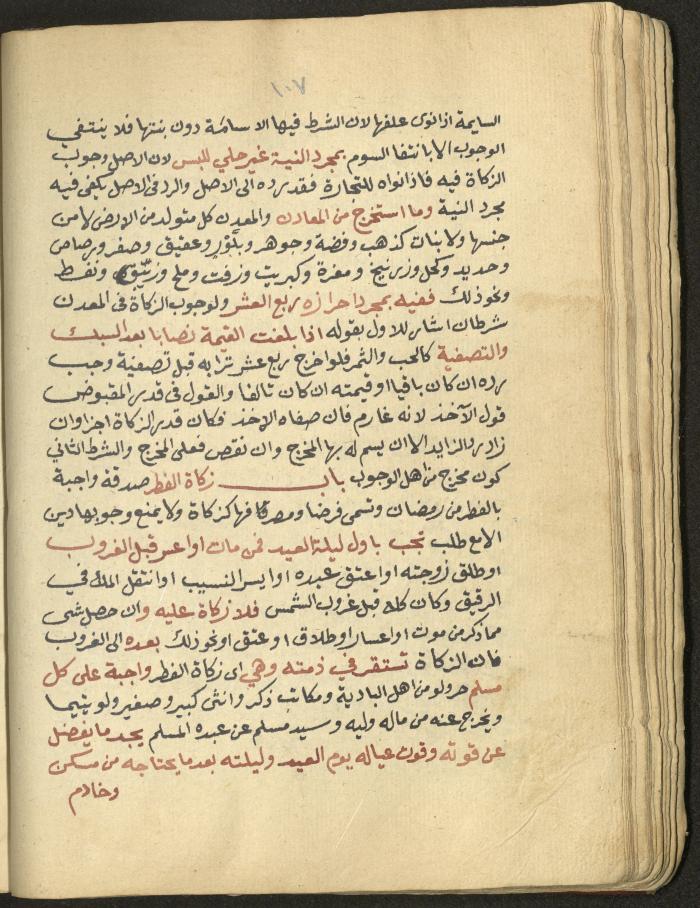 ١٠٧
السايمة اذا نوى علفها لان الشرط فيها الاسامة دون نيتها فلا ينتفي
الوجوب الا بانتفا السوم بمجرد النية غير حلي للبس لان الاصل وجوب
الزكاة فيه فاذا نواه للتجارة فقد رده الى الاصل والرد في الاصل يكفي فيه
مجرد النية وما استخرج من المعادن والمعدن كل متولد من الارض لا من
جنسها ولا نبات كذهب وفضة وجوهر وبلور وعقيق وصفر ورصاص
وحديد وكحل وزرنيخ ومغرة وكبريت وزفت وملح وزيبق ونفط
ونحو ذلك ففيه بمجرد احرازه ربع العشر ولوجوب الزكاة في المعدن
شرطان اشار للاول بقوله اذا بلغت القيمة نصابا بعد السبك
والتصفية كالحب والثمر فلو اخرج ربع عشر ترابه قبل تصفية وجب
رده ان كان باقيا او قيمته ان كان تالفا والقول في قدر المقبوض
قول الآخذ لانه غارم فان صفاه الاخذ فكان قدر الزكاة اجزا وان
زاد رد الزايد الا ان يسمح له بها المخرج وان نقص فعلى المخرج والشرط الثاني
كون مخرج من اهل الوجوب باب زكاة الفطر صدقة واجبة
بالفطر من رمضان وتسمى فرضا ومصرفها كزكاة ولا يمنع وجوبها دين
الا مع طلب تجب باول ليلة العيد فمن مات او اعسر قبل الغروب
او طلق زوجته او اعتق عبده او ايسر النسيب او انتقل الملك في
الرقيق وكان كله قبل غروب الشمس فلا زكاة عليه وان حصل شى
مما ذكر من موت او اعسار او طلاق او عتق او نحو ذلك بعده الى الغروب
فان الزكاة تستقر في ذمته وهي اى زكاة الفطر واجبة على كل
مسلم حر ولو من اهل البادية ومكاتب ذكر وانثى كبير وصغير ولو يتيما
ويخرج عنه من ماله وليه وسيد مسلم عن عبده المسلم يجد ما يفضل
عن قوته وقوت عياله يوم العيد وليلته بعد ما يحتاجه من مسكن
وخادم